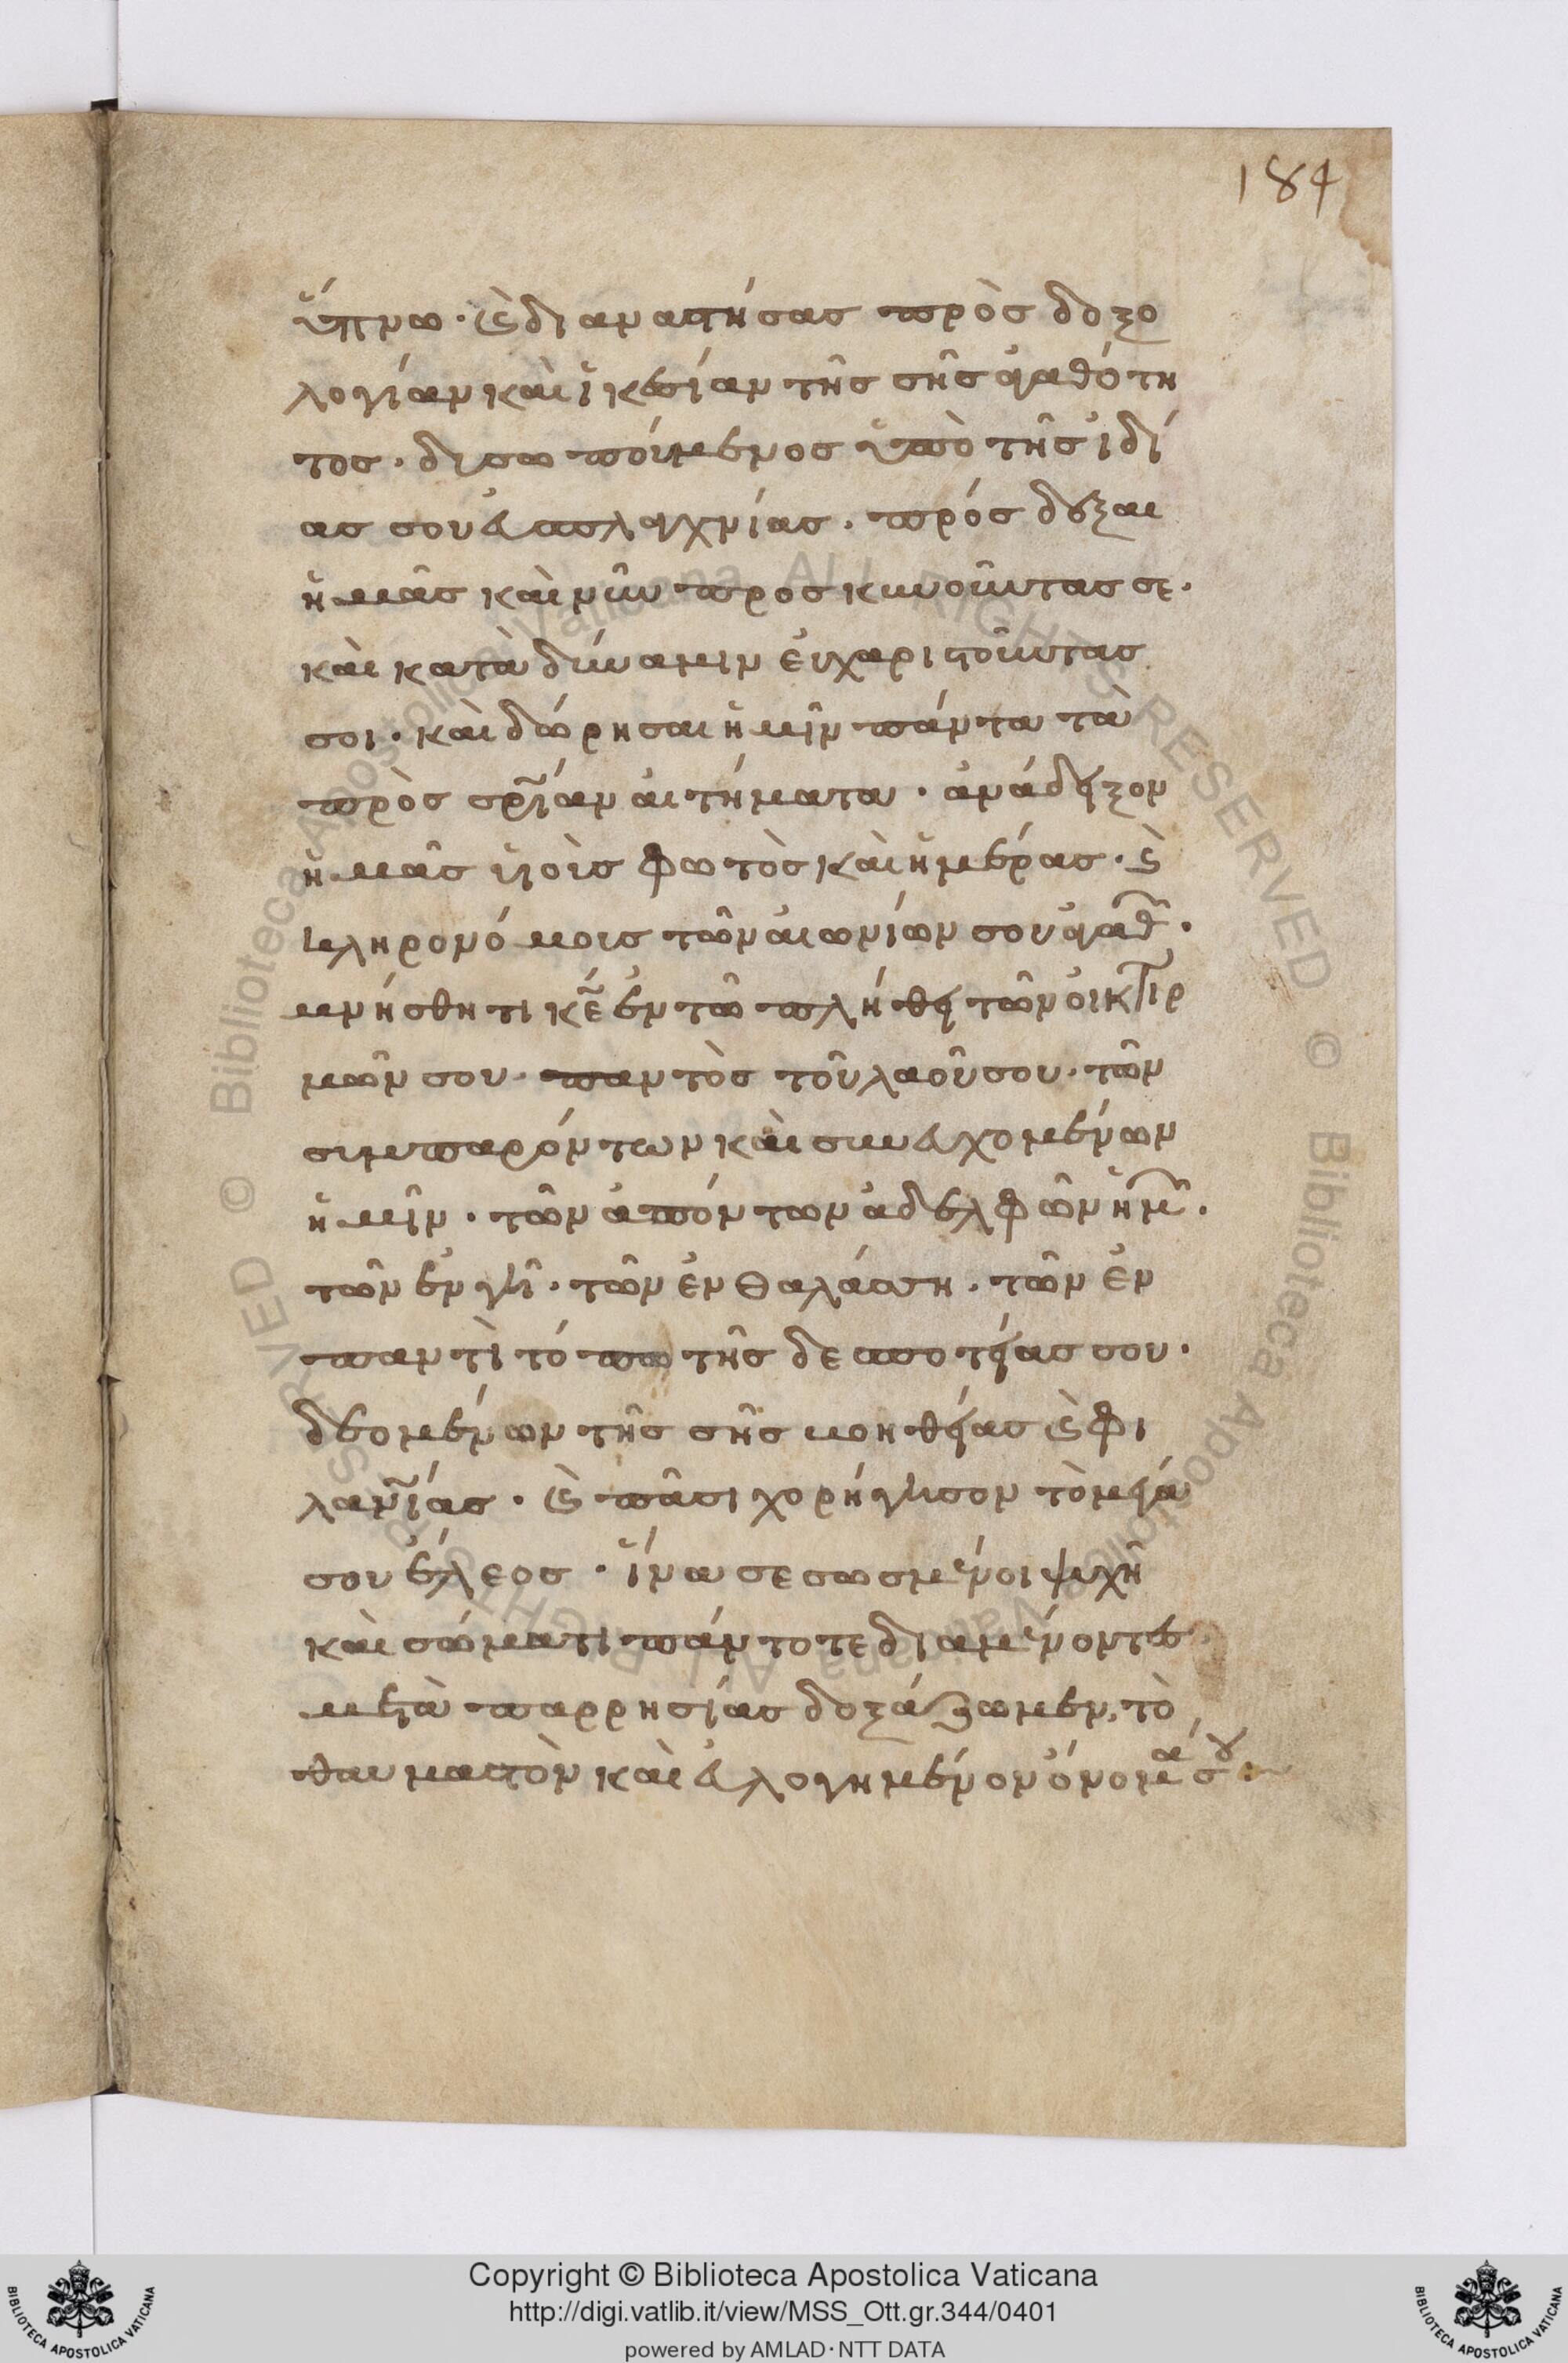 184
ὕπνω · (καὶ) διαναστήσας πρὸς δοξο
λογίαν καὶ ἱκεσίαν τῆς σῆς ἀγαθότη
τος · δυσωπούμενος ὑπὸ τῆς ἰδί
ας σου εὐσπλαγχνίας · πρόσδεξαι
ἡμᾶς καὶ νῦν προσκυνοῦντας σε ·
καὶ κατὰ δύναμιν εὐχαριστοῦντας
σοι · καὶ δώρησαι ἡμῖν πάντα τὰ
πρὸς σρίαν αἰτήματα · ἀνάδειξον
ἡμᾶς υἱοὺς φωτὸς καὶ ἡμέρας · (καὶ)
κληρονόμους τῶν αἰωνίων σου ἀγαθ ·
μνήσθητι κε ἐν τῶ πλήθει τῶν οἰκτιρ
μῶν σου · παντὸς τοῦ λαοῦ σου · τῶν
συμπαρόντων καὶ συνευχομένων
ἡμῖν · τῶν ἀπόντων ἀδελφῶν ἡμ ·
τῶν ἐν γῆ · τῶν ἐν θαλάσση · τῶν ἐν
παντὶ τόπω τῆς δεσποτείας σου ·
δεομένων τῆς σῆς βοηθείας (καὶ) φι
λανίας · (καὶ) πᾶσι χορήγησον τὸ μέγα
σου ἔλεος · ἵνα σεσωσμένοι ψυχῆ
καὶ σώματι πάντοτε διαμένοντες
μετὰ παρρησίας δοξάζωμεν, τὸ
θαυμαστὸν καὶ εὐλογημένον ὄνομα σου :~
Copyright © Biblioteca Apostolica Vaticana
http://digi.vatlib.it/view/MSS_Ott.gr.344/0401
powered by AMLAD · NTT DATA